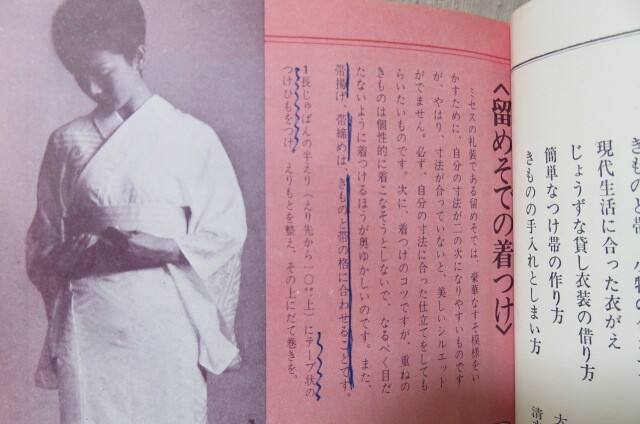 きものと帯、小物の
現代生活に合った衣がえ
じょうずな貸し衣装の借り方
簡単なつけ帯の作り方
きものの手入れとしまい方
〈留めそでの着つけ〉
ミセスの礼装である留めそでは、豪華なすそ模様をい
かすために、自分の寸法が二の次になりやすいものです
が、やはり、寸法が合っていないと、美しいシルエット
がでません。必ず、自分の寸法に合った仕立てをしても
らいたいものです。次に、着つけのコツですが、重ねの
きものは個性的に着こなそうとしないで、なるべく目だ
たないように着つけるほうが奥ゆかしいのです。また、
帯揚げ、帯締めは、きものと帯の格に合わせることです。
1長じゅばんの半えり（えり先から一〇㌢上）にテープ状の
つけひもをつけ、えりもとを整え、その上にだて巻きを。